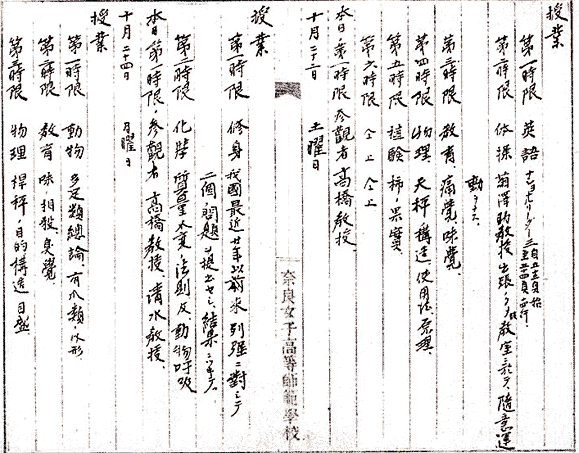 授業
第一時限 英語 ナショナルリーダー三
第二時限 体操 教授出張ノ 教室ニ於テ随意運
動ヲナス、
第三時限 教育 痛覚味覚、
第四時限 物理 天秤ノ構造、使用法原理、
第五時限 植物 柿ノ果実
第六時限 仝上 仝上
本日ノ第一時限参観者 高橋教授、
十月二十二日 土曜日
授業
第一時限 修身 我国最近廿年以前米列強ニ対シテ
二個ノ問題ヲ提出セシ結果ニツキテ
第二時限 化学 質量不変ノ法則及動物呼吸
本日第一時限 参観者 高橋教授、清水教授、
十月二十四日 月曜日
授業
第一時限 動物 多足類総論、有爪類ノ外形
第二時限 教育 味覚 臭覚
第三時限 物理 桿秤ノ目的構造 目盛
奈良女子高等師範学校